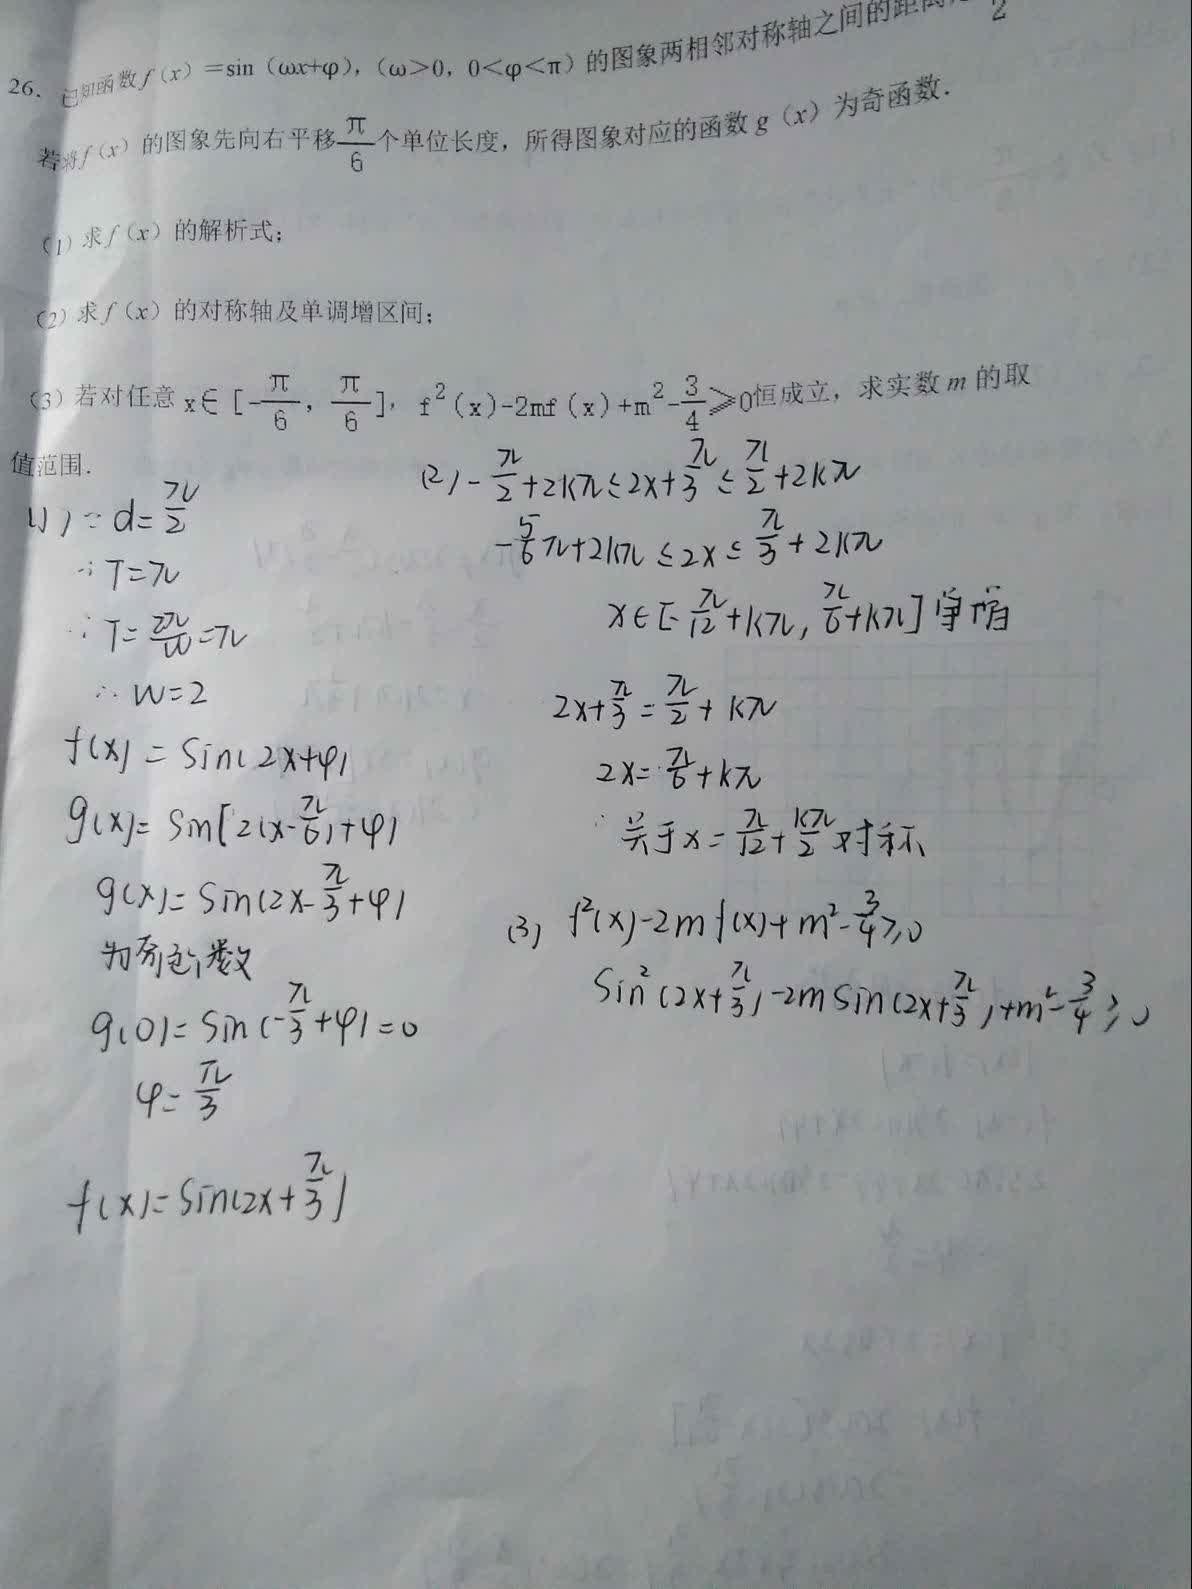 26. 已知函数f（x）=sin（ωx+φ），（ω>0，0<φ<π）的图象两相邻对称轴之间的距离 π/2
若将f（x）的图象先向右平移π/6个单位长度，所得图象对应的函数g（x）为奇函数.
（1）求f（x）的解析式；
（2）求f（x）的对称轴及单调增区间；
（3）若对任意x∈[-π/6，π/6]，f²(x)-2mf(x)+m²-3/4≥0恒成立，求实数m的取
值范围.
(1) ∵ d=π/2
∴ T=π
∵ T=2π/w=π
∴ w=2
f(x)=sin(2x+φ)
g(x)=sin[2(x-π/6)+φ)
g(x)=sin(2x-π/3+φ)
为奇函数
g(0)=sin(-π/3+φ)=0
φ=π/3
f(x)=sin(2x+π/3)
(2) -π/2+2kπ≤2x+π/3≤π/2+2kπ
-5/6π+2kπ≤2x≤π/3+2kπ
x∈[-π/12+kπ, π/6+kπ]单增
2x+π/3=π/2+kπ
2x=π/6+kπ
∴ 关于x=π/12+kπ/2对称
(3) f²(x)-2mf(x)+m²-3/4≥0
sin²(2x+π/3)-2msin(2x+π/3)+m²-3/4≥0